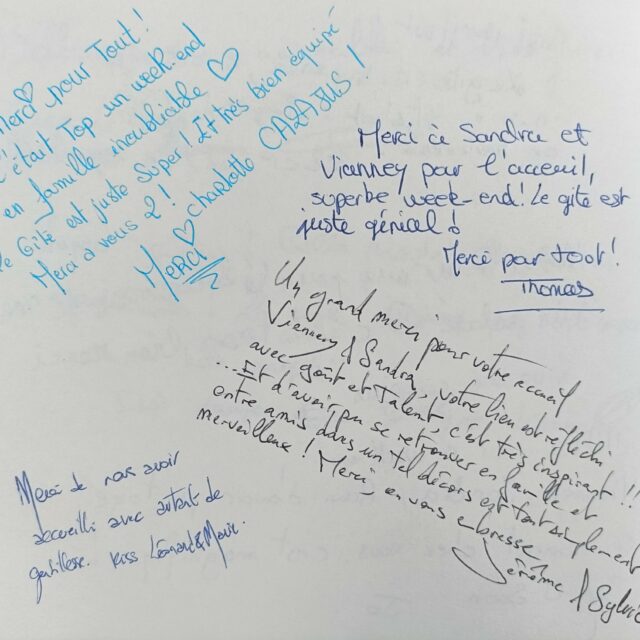 Merci pour Tout !
C'était Top un week-end
en famille inoubliable ♡
Le Gîte est juste Super ! Et très bien équipé
Merci à vous 2 !
Merci ♡ Charlotte CALAJUS !
Merci à Sandra et
Vianney pour l'acceuil,
superbe week-end! Le gîte est
juste génial !
Merci pour tout !
Thomas
Un grand merci pour votre accueil
Vianney & Sandra, votre lieu est réfléchi
avec goût et Talent, c'est très inspirant !!
...Et d'avoir pu se retrouver en famille et
entre amis dans un tel décors est tout simplement
merveilleux ! Merci, on vous embrasse
Jérôme & Sylvie
Merci de nous avoir
accueilli avec autant de
gentillesse. Kiss Léonard & Marie.